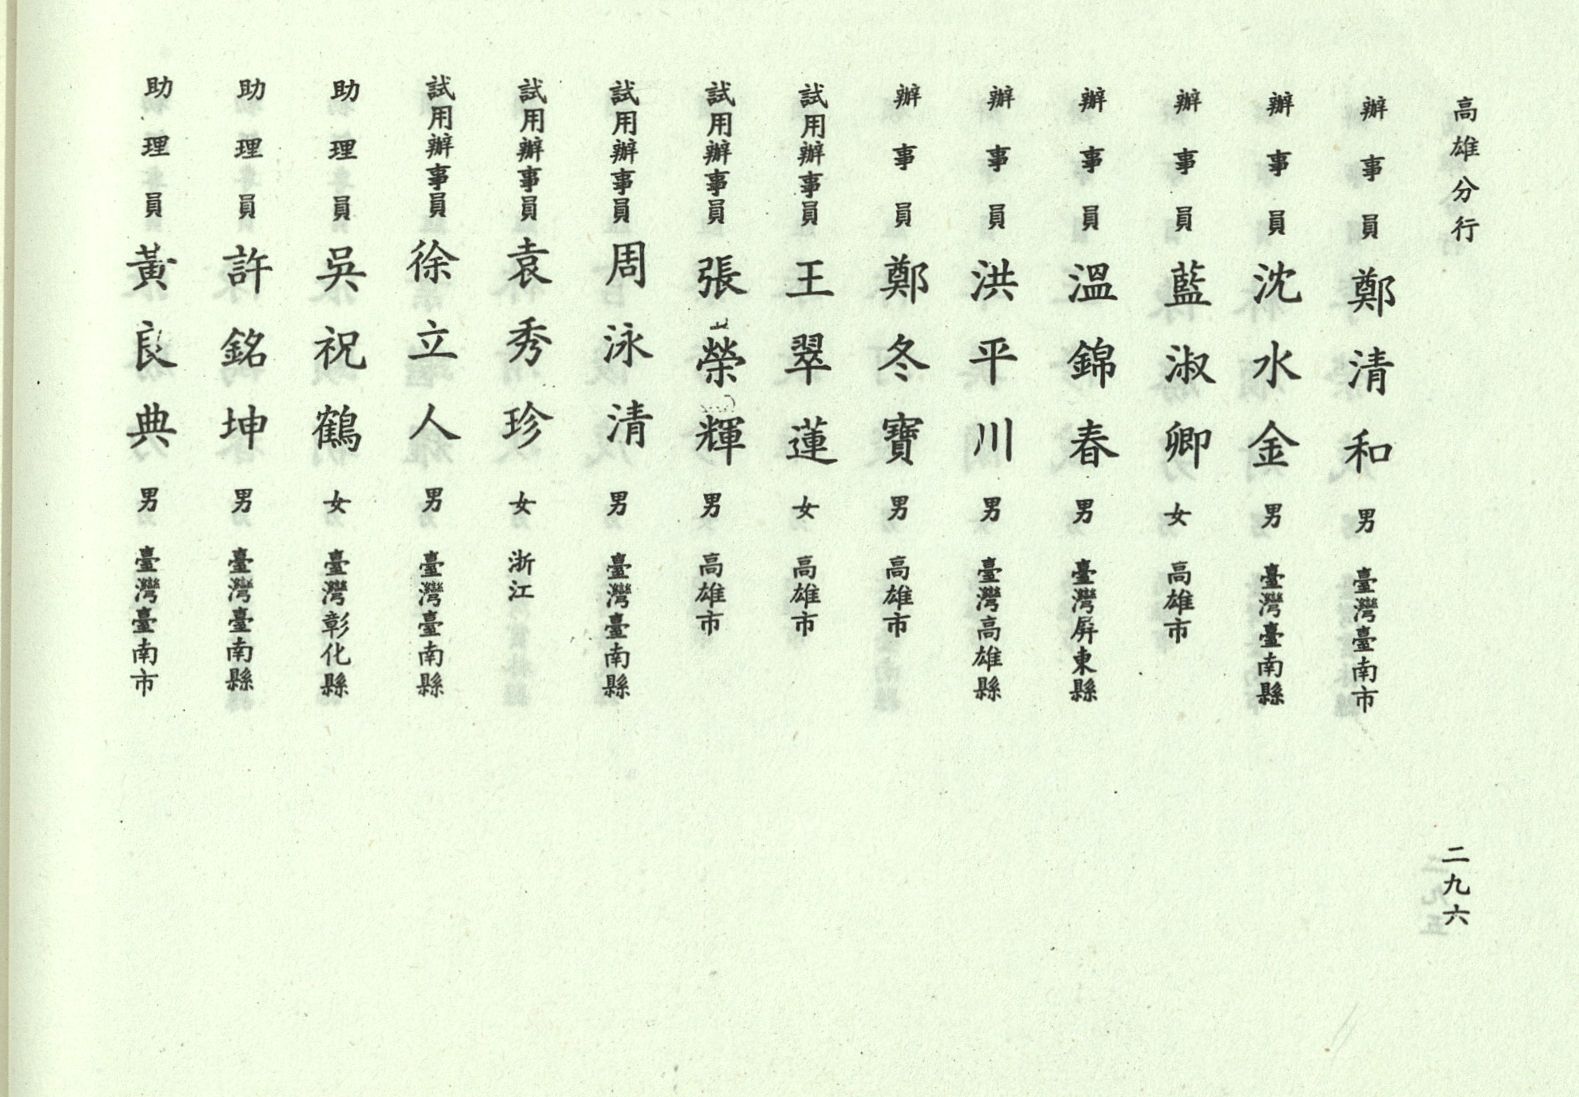 高雄分行
辦事員 鄭清和 男 臺灣臺南市
辦事員 沈水金 男 臺灣臺南縣
辦事員 藍淑卿 女 高雄市
辦事員 溫錦春 男 臺灣屏東縣
辦事員 洪平川 男 臺灣高雄縣
辦事員 鄭冬寶 男 高雄市
試用辦事員 王翠蓮 女 高雄市
試用辦事員 張榮輝 男 高雄市
試用辦事員 周泳清 男 臺灣臺南縣
試用辦事員 袁秀珍 女 浙江
試用辦事員 徐立人 男 臺灣臺南縣
助理員 吳祝鶴 女 臺灣彰化縣
助理員 許銘坤 男 臺灣臺南縣
助理員 黃良典 男 臺灣臺南市
二九六